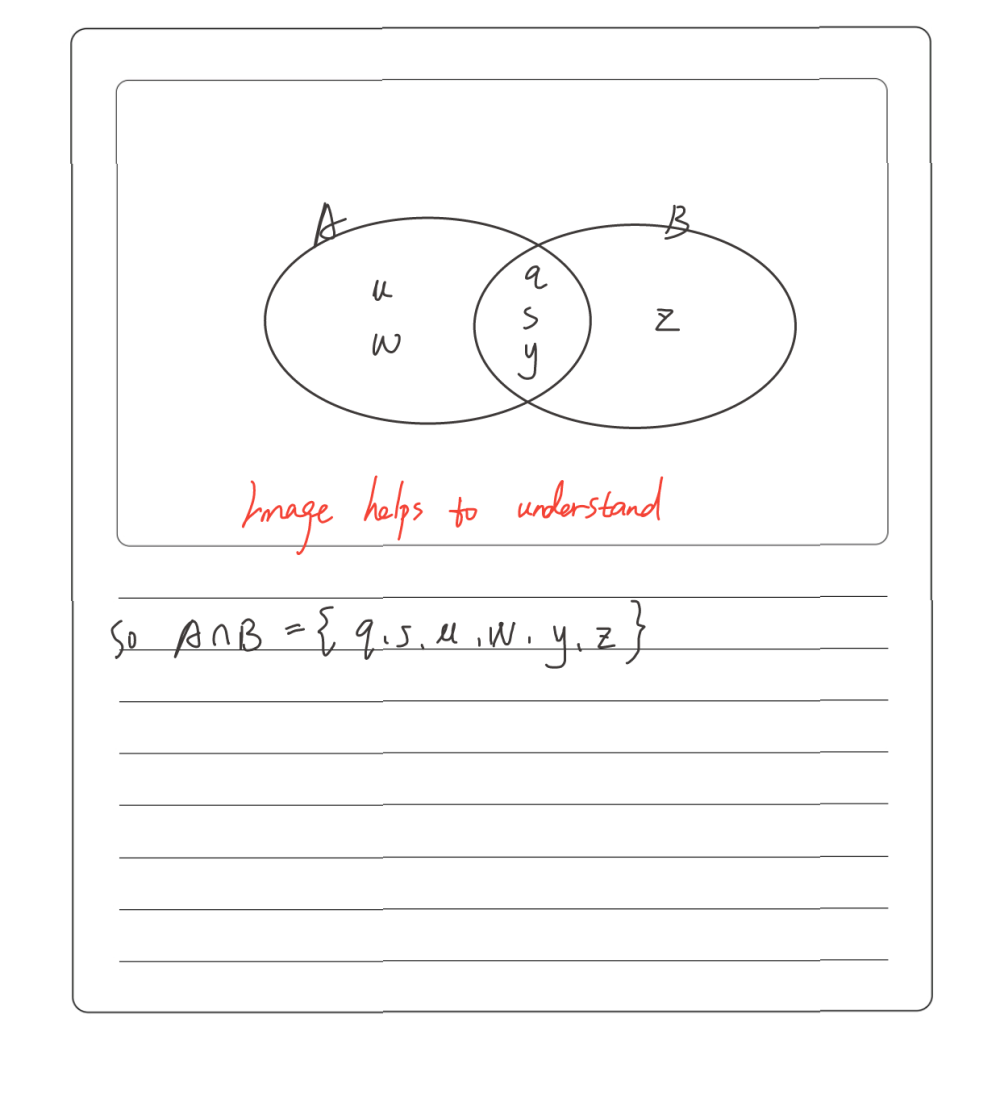 A
B
u
w
q
s
y
z
Image helps to understand
So A∩B = { q, s, u, w, y, z }